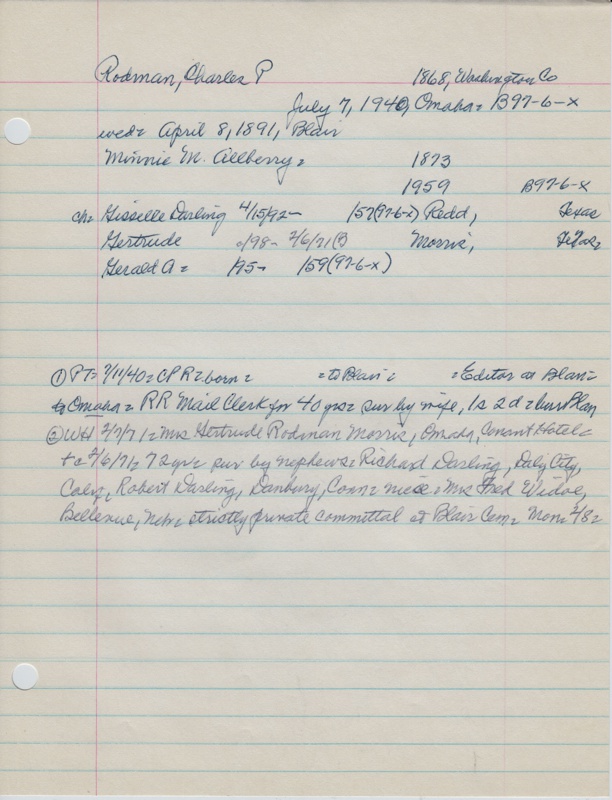 Rodman, Charles P 1868, Washington Co
July 7, 1940, Omaha= B97-6-x
wed= April 8, 1891, Blair
Minnie M. Allberry= 1873
1959 B97-6-x
ch= Gisselle Darling 4/15/92- 157(97-6-x) Redd, Texas
Gertrude /98- 2/6/71(B) Morris,
Gerald A= /95- /59(97-6-x)
① PT= 7/11/40= CPR= born= =to Blair= =Editor at Blair=
to Omaha= RR Mail Clerk for 40 yrs= sur by wife, 1s 2d= bur Blair
② WH 2/7/71= Mrs Gertrude Rodman Morris, Omaha, Conant Hotel=
2/6/71= 72 yr= sur by nephews= Richard Darling, Daly City,
Calif, Robert Darling, Danbury, Conn= niece= Mrs Fred Widoe,
Bellevue, Neb= strictly private committal at Blair Cem= Mon= 2/8=